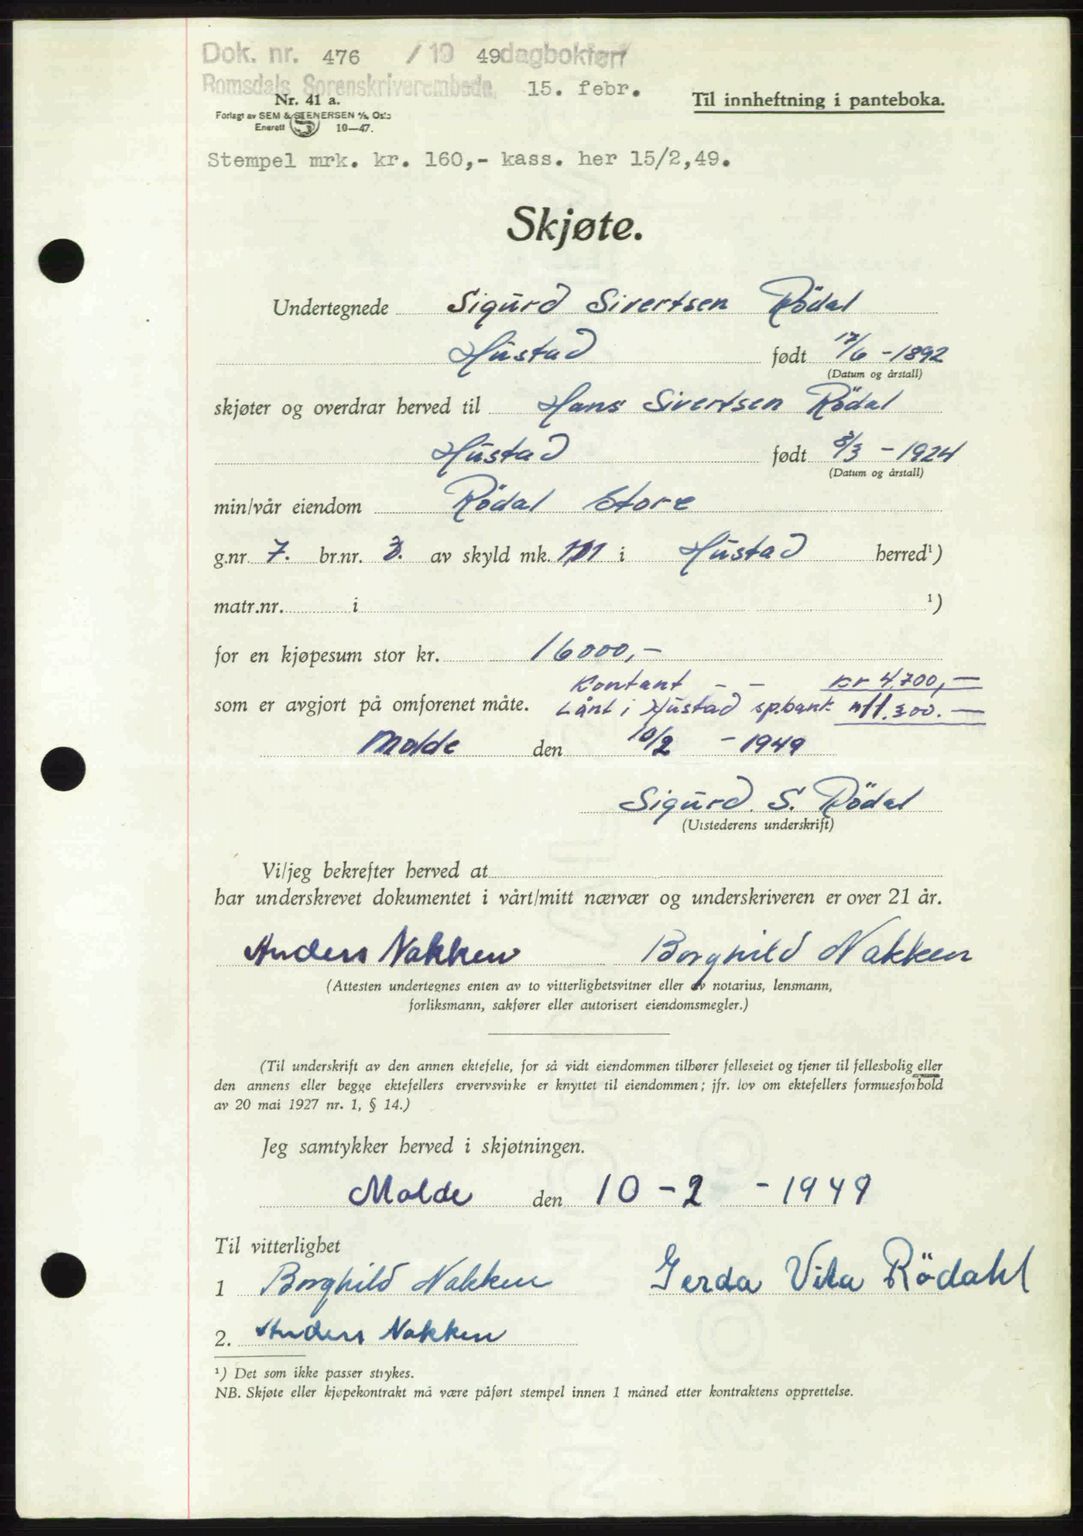 Dok. nr. 476 / 19 49 dagbokført
Romsdals Sorenskriverembede, 15. febr.
Nr. 41 a.
Til innheftning i panteboka.
Forlagt av SEM & STENERSEN A/S, Oslo
Enerett 10—47.
Stempel mrk. kr. 160,- kass. her 15/2,49.
Skjøte.
Undertegnede Sigurd Sivertsen Rödal
Hustad født 17/6 - 1892
(Datum og årstall)
skjøter og overdrar herved til Hans Sivertsen Rödal
Hustad født 8/3 - 1924
(Datum og årstall)
min/vår eiendom Rödal Store
g.nr. 7. br.nr. 3. av skyld mk. i Hustad herred¹)
matr.nr. i ¹)
for en kjøpesum stor kr. 16000,-
Kontant - - kr 4.700,—
som er avgjort på omforenet måte. Lånt i Hustad sp.bank " 11.300.—
Molde den 10/2 - 1949
Sigurd S. Rödal
(Utstederens underskrift)
Vi/jeg bekrefter herved at
har underskrevet dokumentet i vårt/mitt nærvær og underskriveren er over 21 år.
Anders Nakken Borghild Nakken
(Attesten undertegnes enten av to vitterlighetsvitner eller av notarius, lensmann,
forliksmann, sakfører eller autorisert eiendomsmegler.)
(Til underskrift av den annen ektefelle, for så vidt eiendommen tilhører felleseiet og tjener til fellesbolig eller
den annens eller begge ektefellers ervervsvirke er knyttet til eiendommen; jfr. lov om ektefellers formuesforhold
av 20 mai 1927 nr. 1, § 14.)
Jeg samtykker herved i skjøtningen.
Molde den 10 - 2 - 1949
Til vitterlighet
1 Borghild Nakken Gerda Vita Rödahl
2. Anders Nakken
¹) Det som ikke passer strykes.
NB. Skjøte eller kjøpekontrakt må være påført stempel innen 1 måned etter kontraktens opprettelse.